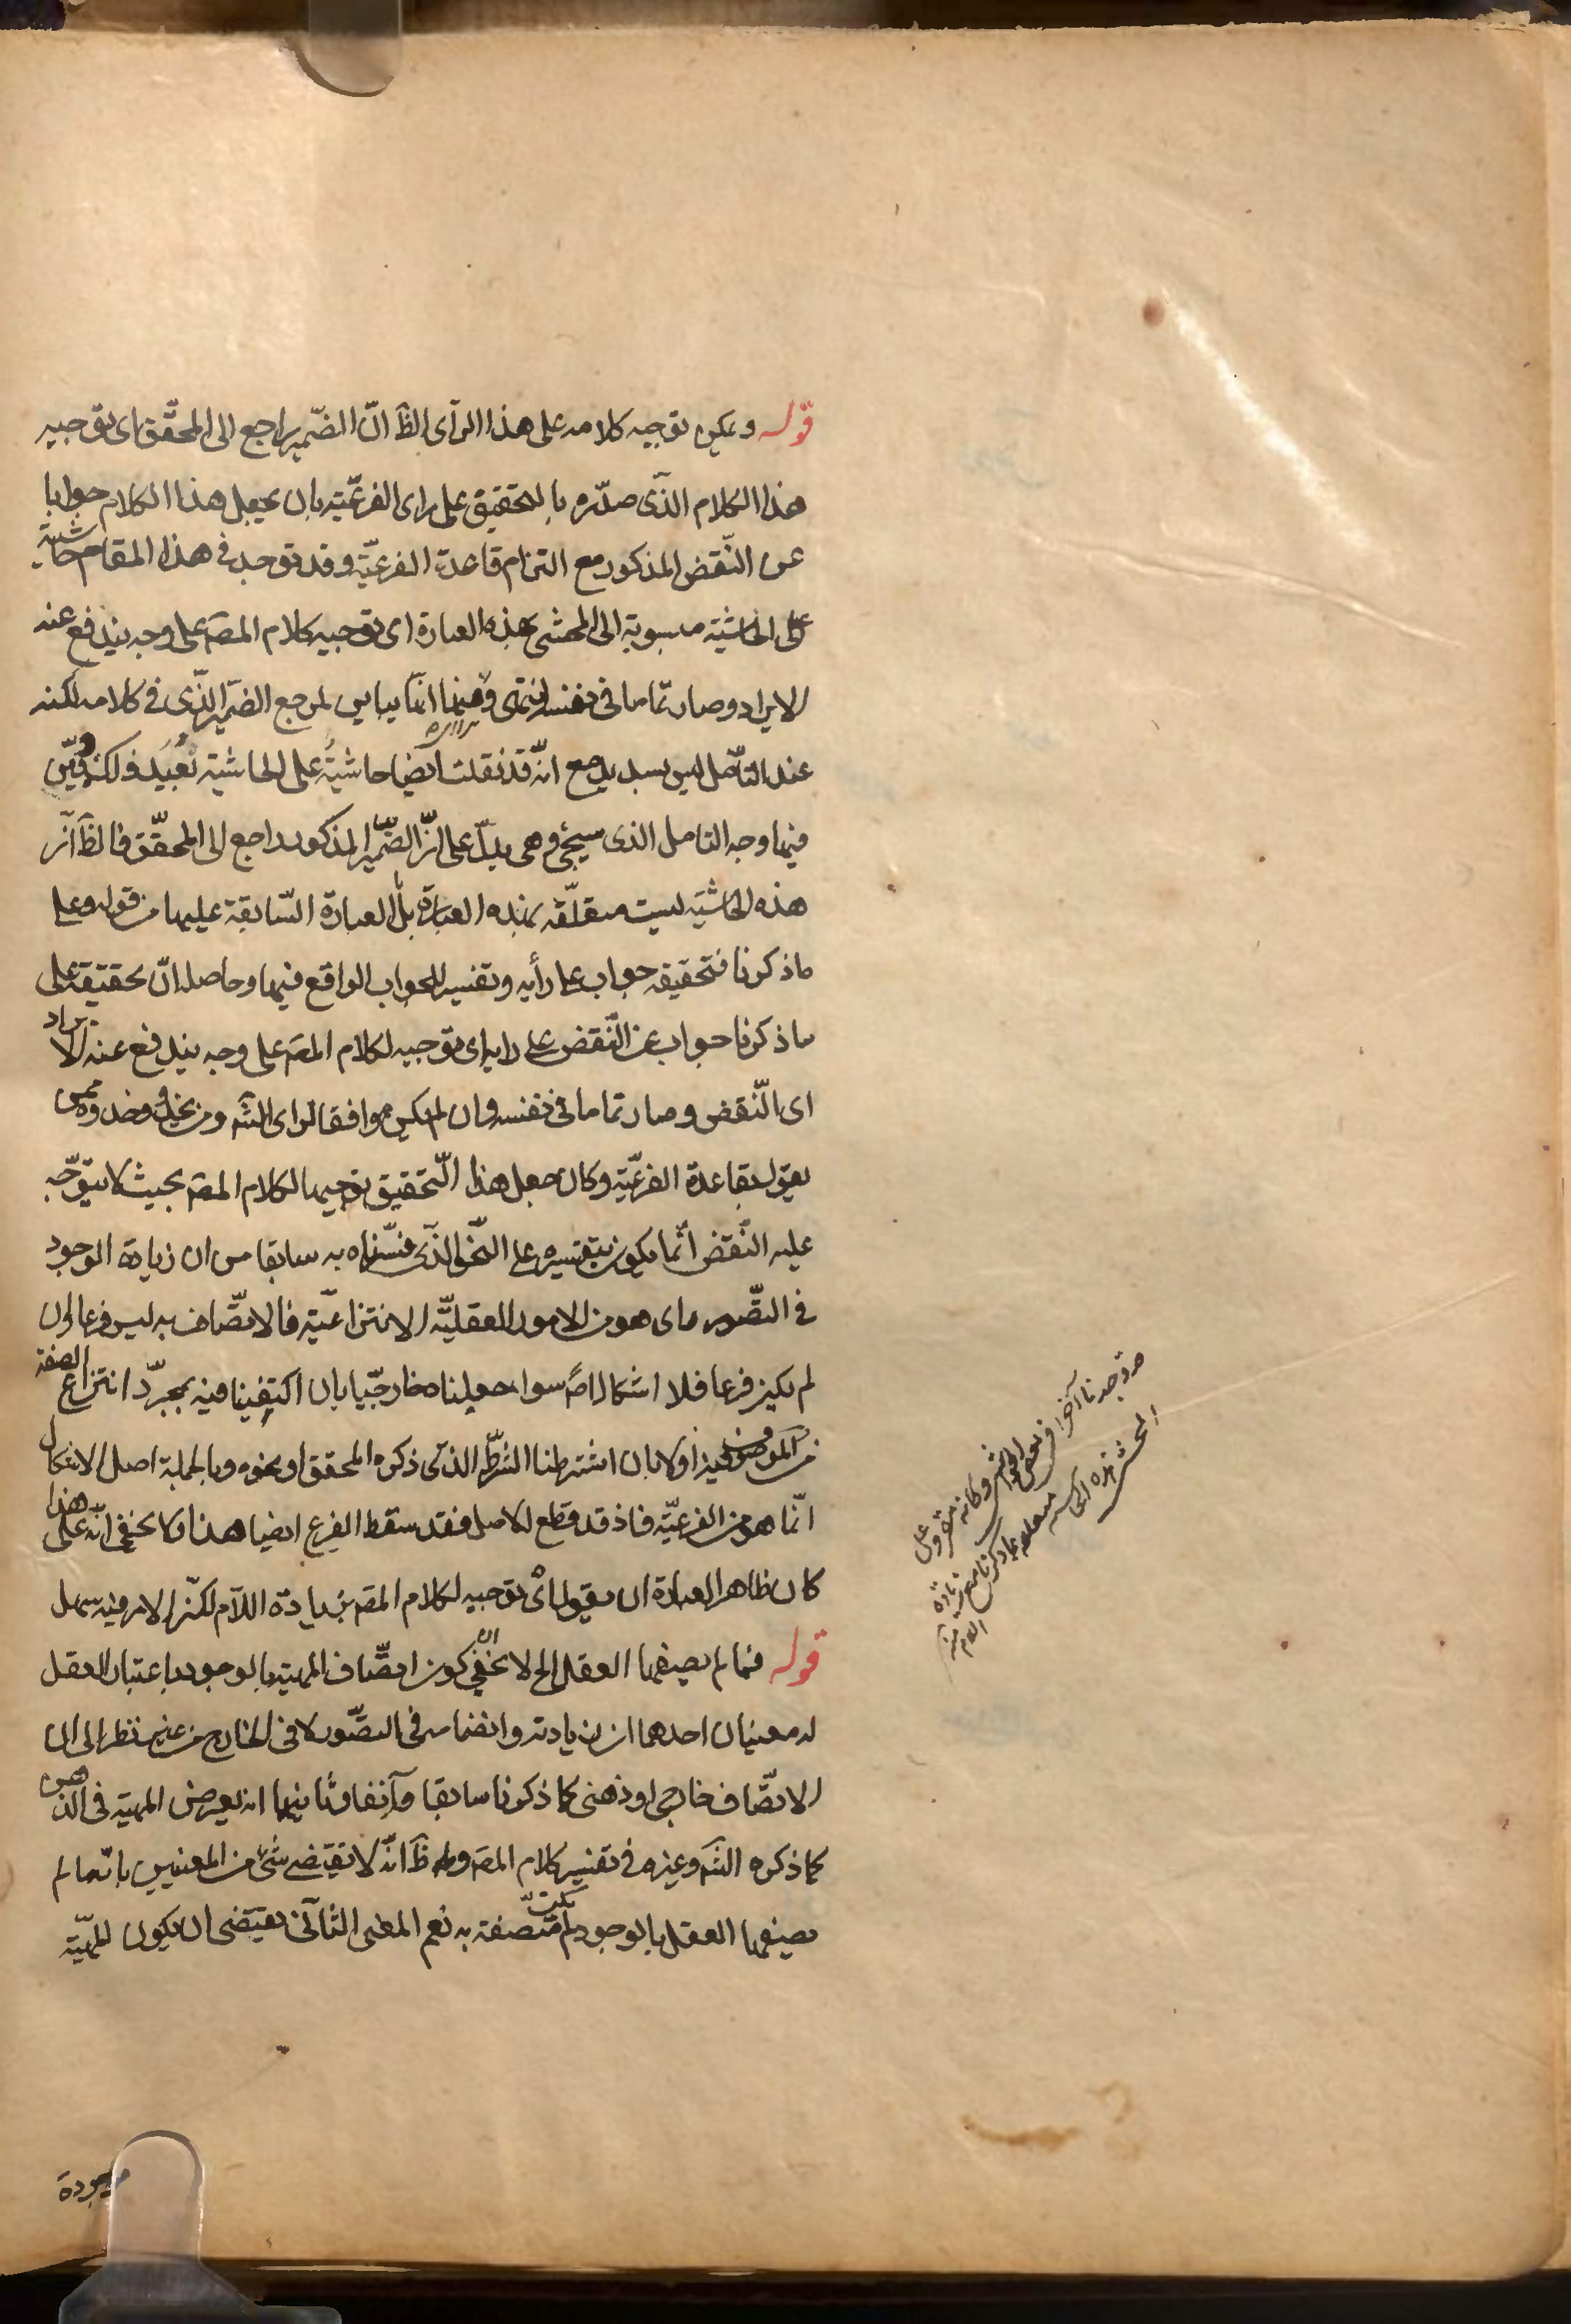 قوله ويمكن توجيه كلامه على هذا الرأى الظ انّ الضّمير راجع الى المحقّق اى توجيه
هذا الكلام الّذى صدّره بالتحقيق على راى الفرعيّة بان يجعل هذا الكلام جوابا
عن النّقض المذكور مع التزام قاعدة الفرعيّة وقد توجد في هذا المقام حاشية
على الحاشية منسوبة الى المحشى بهذه العبارة اى توجيه كلام المصّ على وجه يندفع عنه
الايراد وصار تماما في نفسه انتهى وفيها انّما بيان لمرجع الضّمير الّذى في كلامه لكنه
عند التأمّل ليس بسديد مع انّه قد نقلت ايضا حاشية على الحاشية بعيد ذلك وبيّن
فيها وجه التامل الذى سيجئ وهى يدلّ على انّ الضّمير المذكور راجع الى المحقّق فالظ انّ
هذه الحاشية ليست متعلّقة بهذه العبارة بل العبارة السّابقة عليها من قوله وعلى
ما ذكرنا فتحقيقه جواب على رأيه وتفسير للجواب الواقع فيها وحاصله انّ تحقيقه على
ما ذكرنا جواب عن النّقض على رايه اى توجيه لكلام المصّ على وجه يندفع عنه الايراد
اى النّقض وصار تماما في نفسه وان لم يكن موافقا لراى الشّ ومن يحذو حذوه ممن
يقول بقاعدة الفرعيّة وكان جعل هذا التّحقيق توجيها لكلام المصّ بحيث لا يتوجّه
عليه النّقض انّما يكون بتفسيره على النّحو الّذى فسّرناه به سابقا من ان زيادة الوجود
في التصّور اى هو من الامور العقليّة الانتزاعيّة فالاتصّاف به ليس فرعا وان
لم يكن فرعا فلا اشكال اصً سواء جعلناه خارجيّا بان اكتفينا فيه بمجرّد انتزاع الصفة
من الموصوف فيه اولا بان اشترطنا الشّرط الذى ذكره المحقق او نحوه وبالجملة اصل الاشكال
انّما هو من الفرعيّة فاذ قد قطع الاصل فقد سقط الفرع ايضا هذا ولا يخفى انّه على هذا
كان ظاهر العبارة ان يقول اى توجيه لكلام المصّ بزيادة اللّام لكنّ الامر فيه سهل
قوله فما لم يصفها العقل الخ لا يخفى ان كون اتصّاف المهية بالوجود باعتبار العقل
له معنيان احدهما ان زيادته وانضمامه في التصّور لا في الخارج من غير نظر الى ان
الاتصّاف خارجى او ذهنى كما ذكرنا سابقا وآنفا وثانيهما انه يعرض المهية في الذهن
كما ذكره الشّ وغيره في تفسير كلام المصّ وظ انّه لا يقتضى شئ من المعنيين بانّها لم
يصفها العقل بالوجود لم تكن متّصفة به نعم المعنى الثّانى يقتضى ان يكون للمهيّة
موجودة